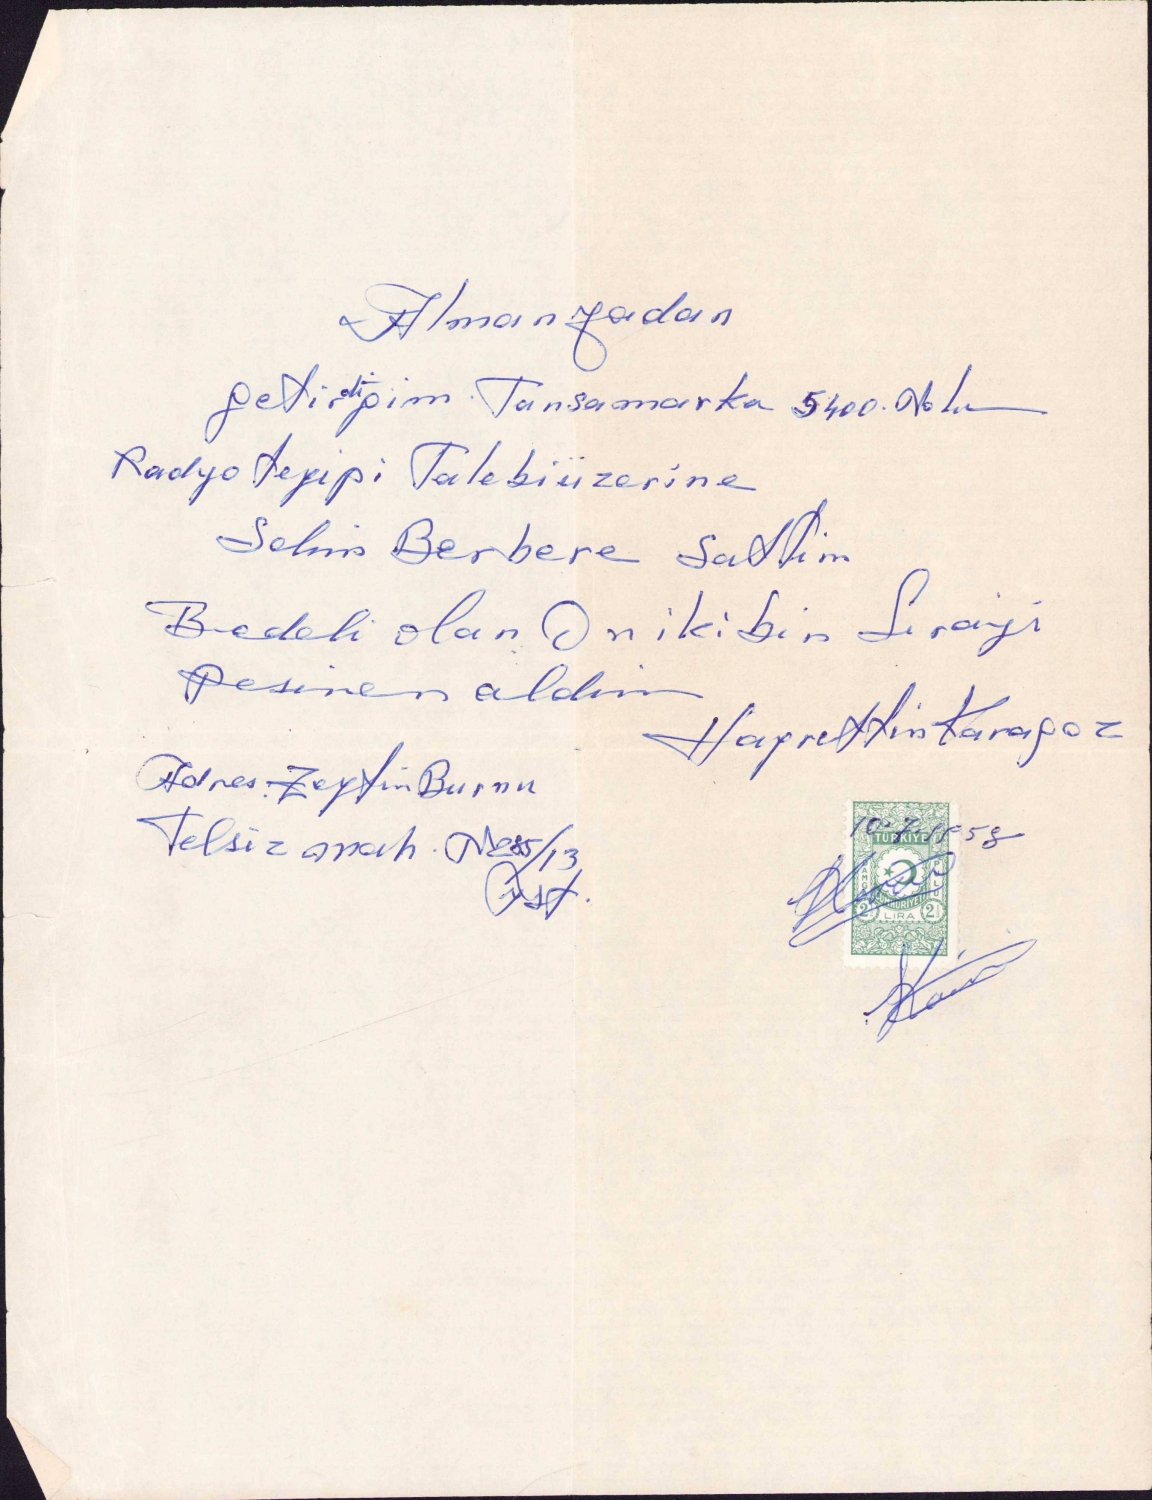 Almanyadan
getirdiğim Tansamarka 5400. Nolu
Radyo teyipi Talebiüzerine
Selim Berbere sattim
Bedeli olan On iki bin Lirayi
Pesinen aldim
Hayrettin Karagoz
Adres. Zeytin Burnu
Telsiz mah. No 85/13
İst.
10.7.1958
TÜRKİYE
CUMHURİYETİ
DAMGA PULU
2½ LİRA 2½